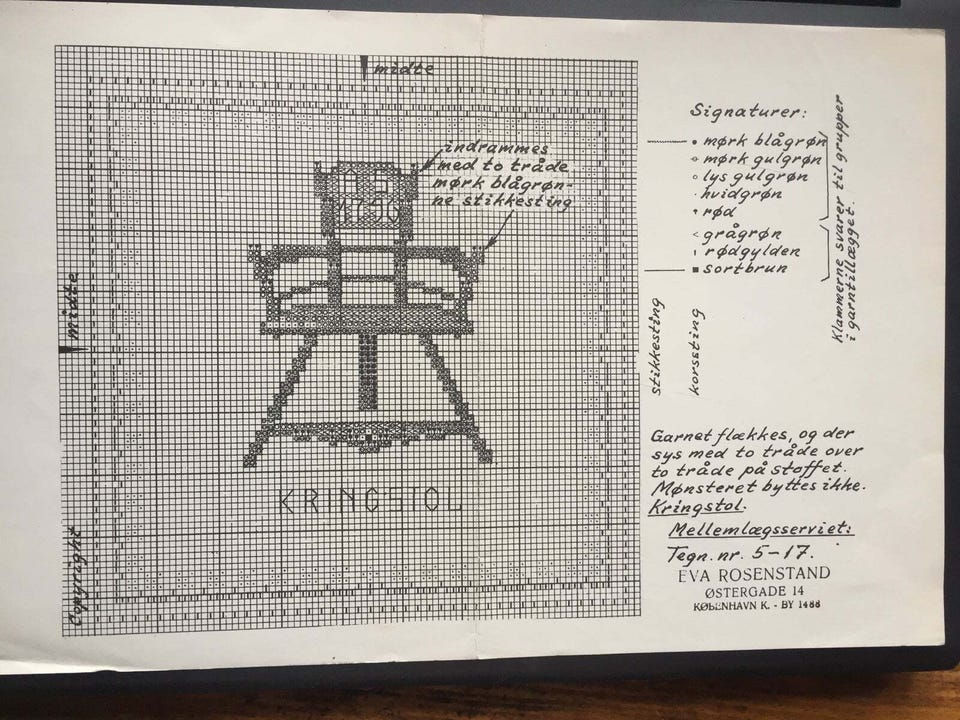 midte
indrammes
med to tråde
mørk blågrøn-
ne stikkesting
midte
1790
KRINGSTOL
Copyright
Signaturer:
mørk blågrøn
mørk gulgrøn
lys gulgrøn
hvidgrøn
rød
grågrøn
rødgylden
sortbrun
Klammerne svarer til grupper
i garntillægget.
stikkesting
korssting
Garnet flækkes, og der
sys med to tråde over
to tråde på stoffet.
Mønsteret byttes ikke.
Kringstol.
Mellemlægsserviet:
Tegn. nr. 5-17.
EVA ROSENSTAND
ØSTERGADE 14
KØBENHAVN K. - BY 1488